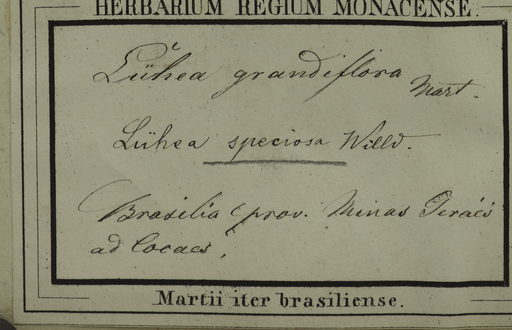 HERBARIUM REGIUM MONACENSE.
Lühea grandiflora Mart.
Lühea speciosa Willd.
Brasilia (prov. Minas Geraës
ad Cocaes,
Martii iter brasiliense.